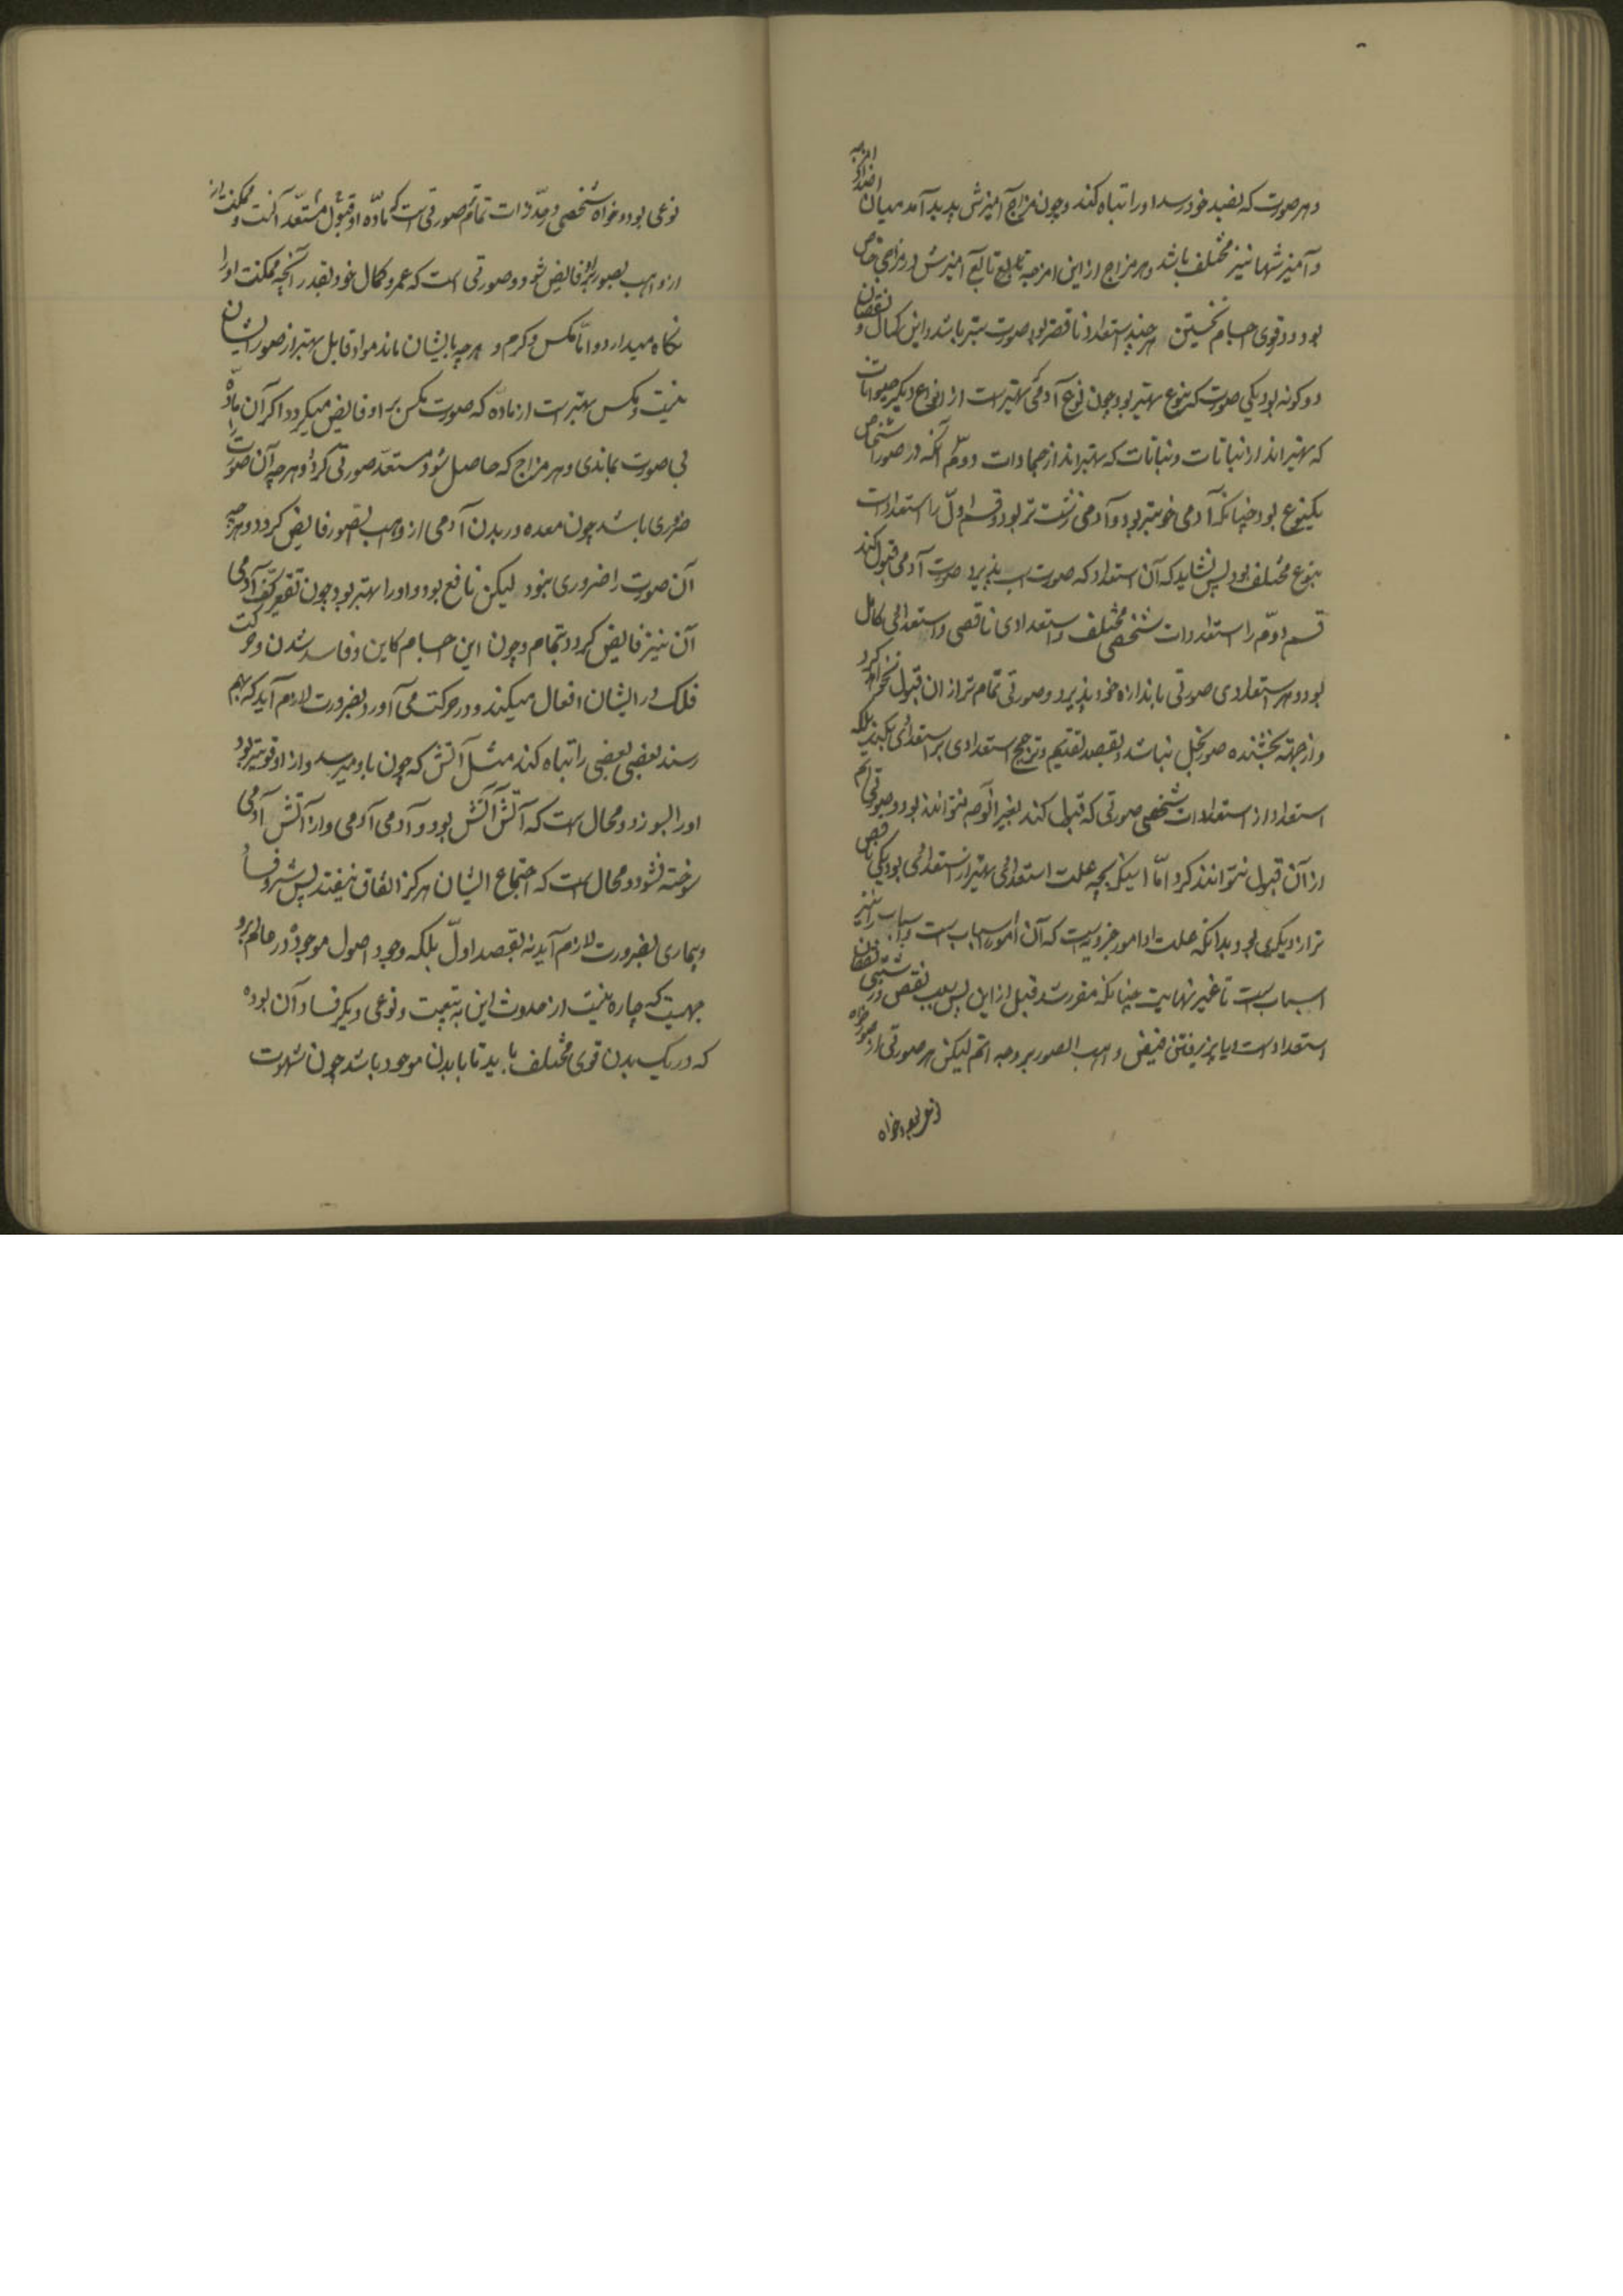 و هر صورت که بضد خود رسد او را تباه کند و چون مزاج آمیزش پدید آمد میان اضداد امزجه
و آمیزشها نیز مختلف باشد و هر مزاج از این امزجه تابع آمیزش و مزاجی خاص
بود و قوی اجسام نخستین هر چند استعداد ناقصتر بود صورت بتر باشد و این کمال و نقصان
دو گونه بود یکی صورت که بنوع بهتر بود چون نوع آدمی که بهتر است از انواع دیگر حیوانات
که بهتراند از نباتات و نباتات که بهتراند از جمادات دوّم آنکه در صور اشخاص
یکنوع بود چنانکه آدمی خوبتر بود و آدمی زشت تر بود و قسم اوّل را استعدادات
بنوع مختلف بود پس نشاید که آن استعداد که صورت اسب پذیرد صورت آدمی قبول کند
قسم دوّم را استعدادات شخصی مختلف و استعدادی ناقص و استعدادی کامل
بود و هر استعدادی صورتی باندازه خود پذیرد و صورتی تمام تر از ان قبول نخواهد کرد
و از جهة بخشنده صور بخل نباشد و بقصد تقدیم و ترجیح استعدادی بر استعدادی نکند بلکه
استعداد از استعدادات شخصی صورتی که قبول کند بغیر آنوجه نتواند بود و صورتی اتم
از آن قبول نتواند کرد امّا اینکه بچه علت استعدادی بهتر از استعدادی بود یکی ناقص
تر از دیگری بود بدانکه علت او امور جزویست که آن امور اسباب است و اسباب را نیز
اسباب است تا غیر نهایت چنانکه مقرر شد قبل از این پس سبب نقص و زشتی نقصان
استعداد است و یا پذیرفتن فیض واهب الصور بر وجه اتم لیکن هر صورتی از صور خواه
نوعی بود و خواه
نوعی بود و خواه شخصی در حدّ ذات تمام صورتی است که مادّه او قبول مستعدّ آنست و ممکنست از
از واهب الصور برو فایض شود و صورتی است که عمر و کمال خود بقدر آنچه ممکنست او را
نگاه میدارد و امّا مگس و کرم و هر چه بایشان ماند مواد قابل بهتر از صور ایشان
نیست و مگس بهتر است از ماده که صورت مگس بر او فایض میگردد اگر آن مادّه
بی صورت بماندی و هر مزاج که حاصل شود مستعدّ صورتی گردد و هر چه آن صورت را
ضروری باشد چون معده در بدن آدمی از واهب الصور فایض گردد و هر چه
آن صورت را ضروری نبود لیکن نافع بود و او را بهتر بود چون تقعیر کف آدمی
آن نیز فایض گردد بتمام و چون این اجسام کاین و فاسد شدن و حرکت
فلک در ایشان افعال میکند و در حرکت می آورد بضرورت لازم آید که بهم
رسند بعضی بعضی را تباه کند مثل آتش که چون باو میرسد و از او قویتر بود
او را بسوزد و محال است که آتش آتش بود و آدمی آدمی و از آتش آدمی
سوخته نشود و محال است که اجتماع ایشان هرگز اتفاق نیفتد پس شر و فساد
و بیماری بضرورت لازم آید نه بقصد اوّل بلکه وجود اصول موجوده در عالم برو
جهیست که چاره نیست از حدوث این به تبعیت و نوعی دیگر فساد آن بود
که در یک بدن قوی مختلف باید تا با بدن موجود باشد چون شهوت